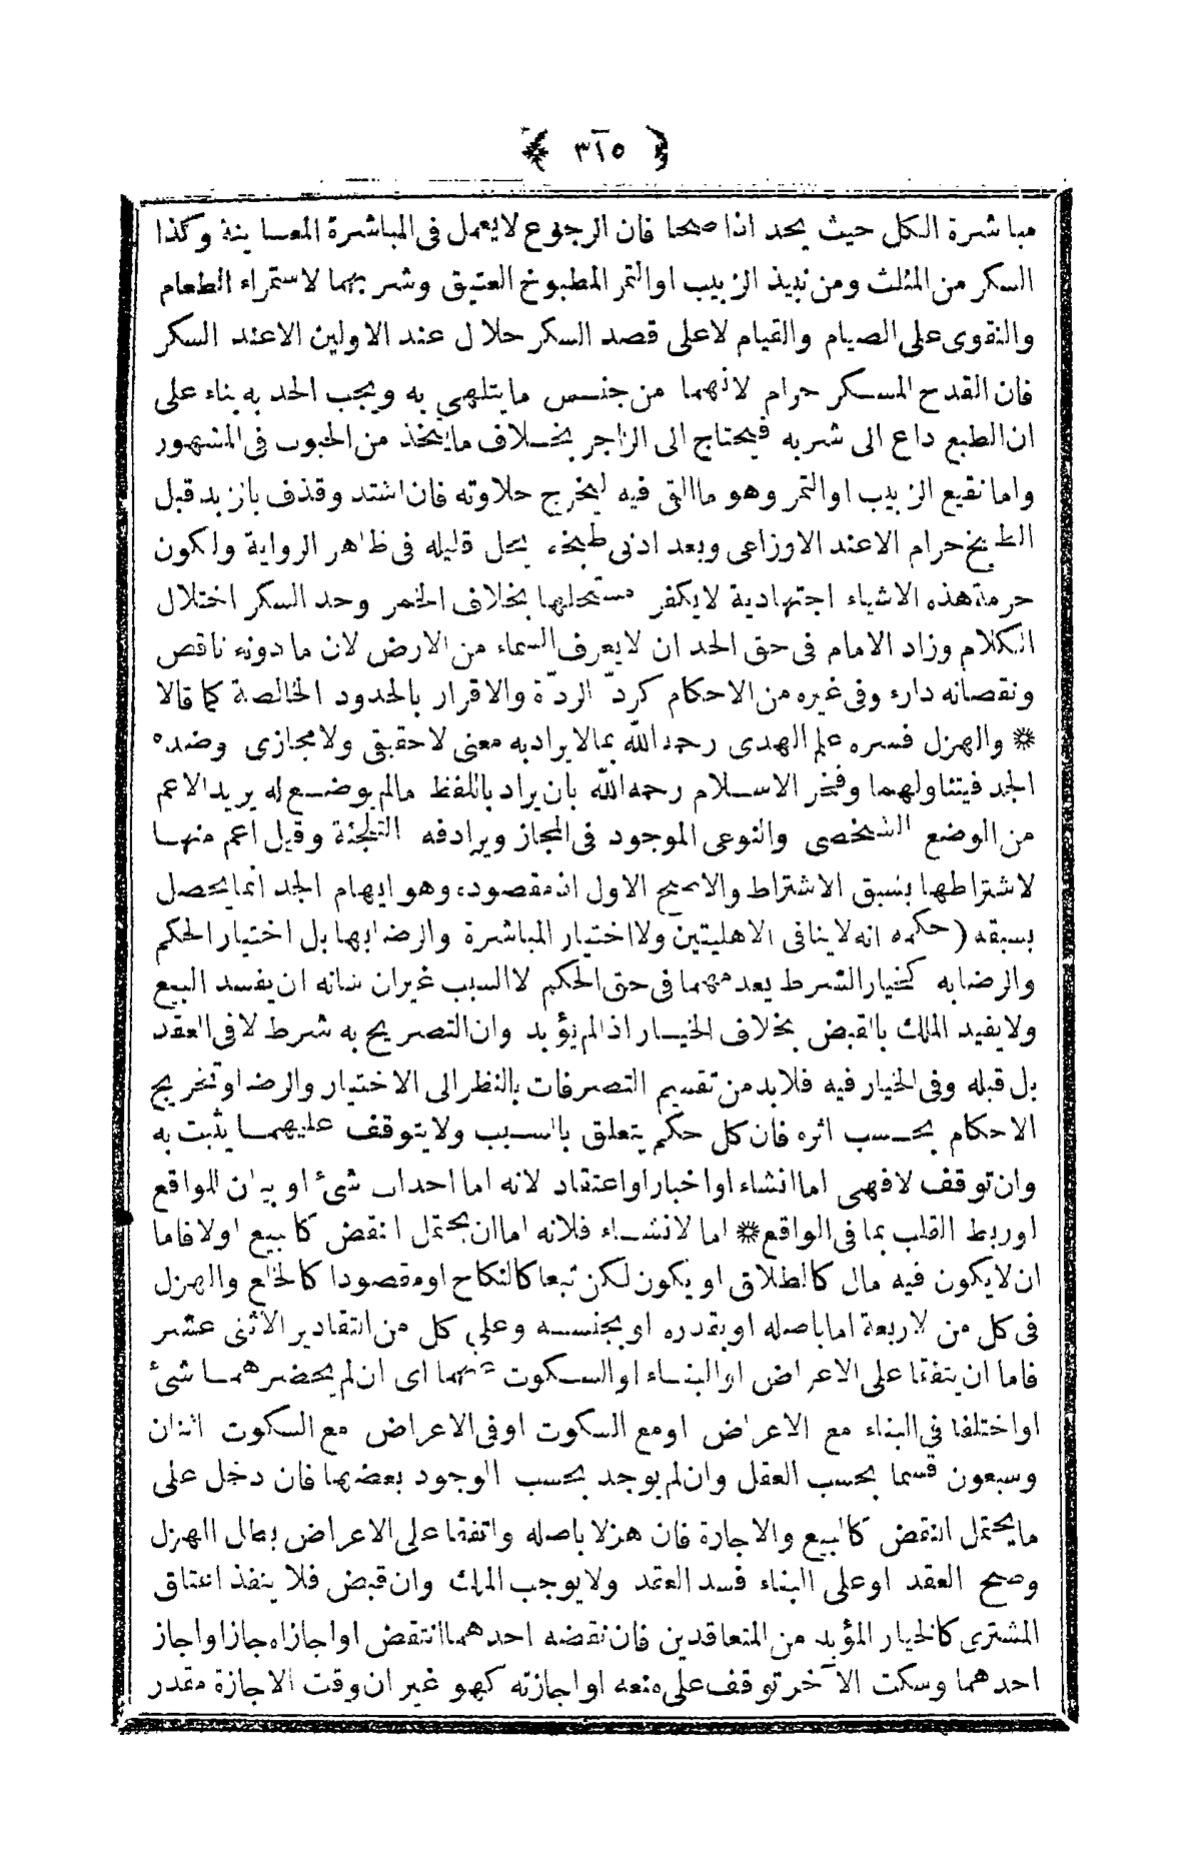 ﴿ ٣١٥ ﴾
مباشرة الكل حيث يحد اذا صحا فان الرجوع لا يعمل فى المباشرة المعاينة وكذا
السكر من المثلث ومن نبيذ الزبيب او التمر المطبوخ العتيق وشربهما لاستمراء الطعام
والتقوى على الصيام والقيام لا على قصد السكر حلال عند الاولين الاعند السكر
فان القدح المسكر حرام لانهما من جنس ما يتلهى به ويجب الحد به بناء على
ان الطبع داع الى شربه فيحتاج الى الزاجر بخلاف ما يتخذ من الحبوب فى المشهور
واما نقيع الزبيب او التمر وهو ما القى فيه ليخرج حلاوته فان اشتد وقذف بازبد قبل
الطبخ حرام الاعند الاوزاعى وبعد ادنى طبخه يحل قليله فى ظاهر الرواية ولكون
حرمة هذه الاشياء اجتهادية لا يكفر مستحلها بخلاف الخمر وحد السكر اختلال
الكلام وزاد الامام فى حق الحد ان لا يعرف السماء من الارض لان ما دونه ناقص
ونقصانه دارء وفى غيره من الاحكام كردّ الردّة والاقرار بالحدود الخالصة كما قالا
* والهزل فسره علم الهدى رحمه الله بما لا يراد به معنى لا حقيقى ولا مجازى وضده
الجد فيتناولهما وفخر الاسلام رحمه الله بان يراد باللفظ مالم يوضع له يريد الاعم
من الوضع الشخصى والنوعى الموجود فى المجاز ويرادفه التلجئة وقيل اعم منها
لاشتراطها بسبق الاشتراط والاصح الاول اذ مقصوده وهو ايهام الجد انما يحصل
بسبقه (حكمه انه لا ينافى الاهليتين ولا اختيار المباشرة والرضا بها بل اختيار الحكم
والرضا به كخيار الشرط يعدمهما فى حق الحكم لا السبب غير ان شانه ان يفسد البيع
ولا يفيد الملك بالقبض بخلاف الخيار اذ لم يؤبد وان التصريح به شرط لا فى العقد
بل قبله وفى الخيار فيه فلابد من تقسيم التصرفات بالنظر الى الاختيار والرضا وتخريج
الاحكام بحسب اثره فان كل حكم يتعلق بالسبب ولا يتوقف عليهما يثبت به
وان توقف لا فهى اما انشاء او اخبار او اعتقاد لانه اما احداث شئ او بيان للواقع
او ربط القلب بما فى الواقع * اما لانشاء فلانه اما ان يحتمل النقض كالبيع اولا فاما
ان لا يكون فيه مال كالطلاق او يكون لكن تبعا كالنكاح او مقصودا كالخلع والهزل
فى كل من لاربعة اما باصله او بقدره او بجنسه وعلى كل من التقادير الاثنى عشر
فاما ان يتفقا على الاعراض او البناء او السكوت عنهما اى ان لم يحضرهما شئ
او اختلفا فى البناء مع الاعراض او مع السكوت او فى الاعراض مع السكوت اثنان
وسبعون قسما بحسب العقل وان لم يوجد بحسب الوجود بعضها فان دخل على
ما يحتمل النقض كالبيع والاجارة فان هزلا باصله واتفقا على الاعراض بطل الهزل
وصح العقد او على البناء فسد العقد ولا يوجب الملك وان قبض فلا ينفذ اعتاق
المشترى كالخيار المؤبد من المتعاقدين فان نقضه احدهما انتقض او اجازاه جاز او اجاز
احدهما وسكت الآخر توقف على منعه او اجازته كهو غير ان وقت الاجازة مقدر